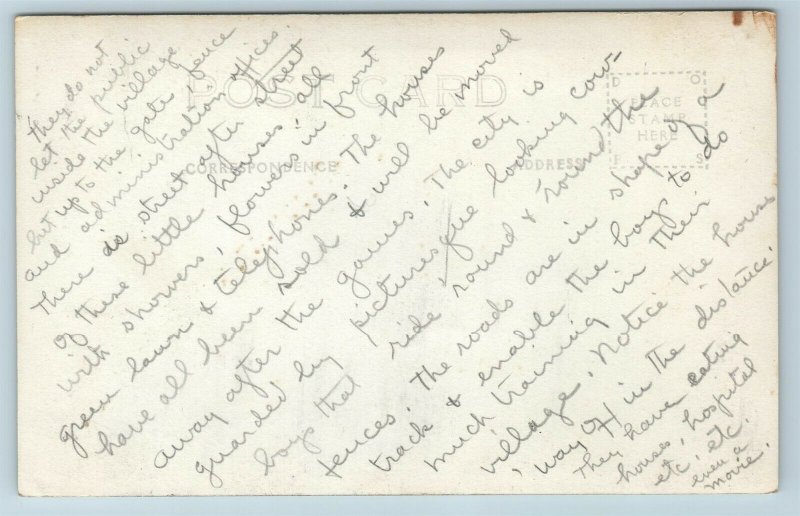 they do not
let the public
inside the village
but up to the gate, fence
and administration offices
There is street after street
of these little houses, all
with showers, flowers in front
green lawn & telephones. The houses
have all been sold & will be moved
away after the games. The city is
guarded by picturesque looking cow-
boys that ride round & round the
fences. The roads are in shape of a
track & enable the boys to do
much training in their
village. Notice the house
way off in the distance.
They have eating
houses, hospital
etc, etc.
even a
movie.
POST CARD
CORRESPONDENCE
ADDRESS
PLACE
STAMP
HERE
D O
F S